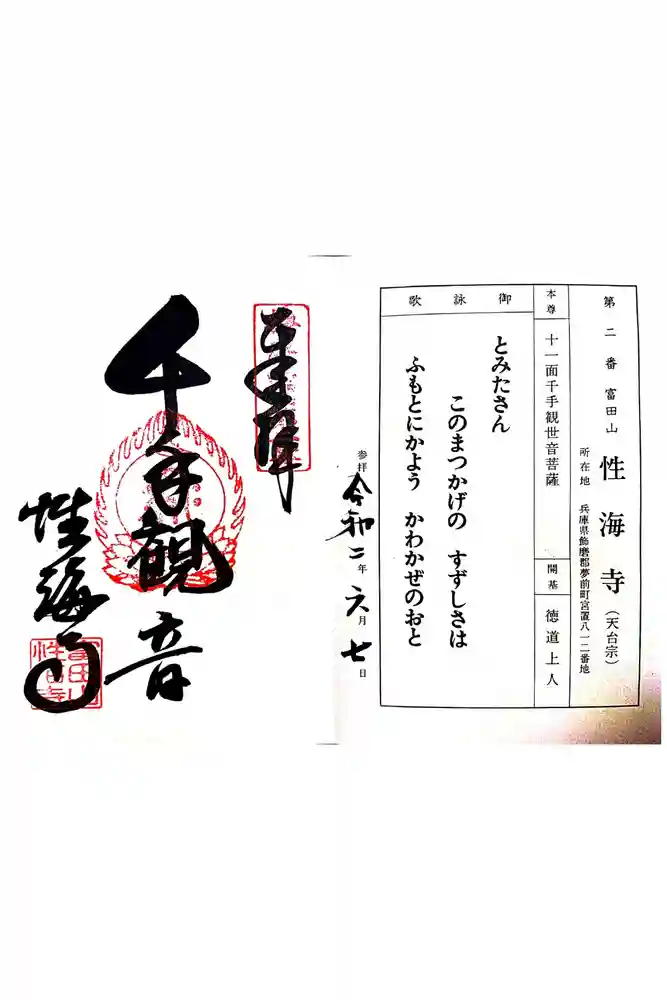 第二番 富田山 性海寺(天台宗)
所在地 兵庫県飾磨郡夢前町宮置八一二番地
本尊 十一面千手観世音菩薩
開基 徳道上人
御詠歌
とみたさん
このまつかげの すずしさは
ふもとにかよう かわかぜのおと
参拝 令和二年六月七日
奉拝
千手観音
性海寺